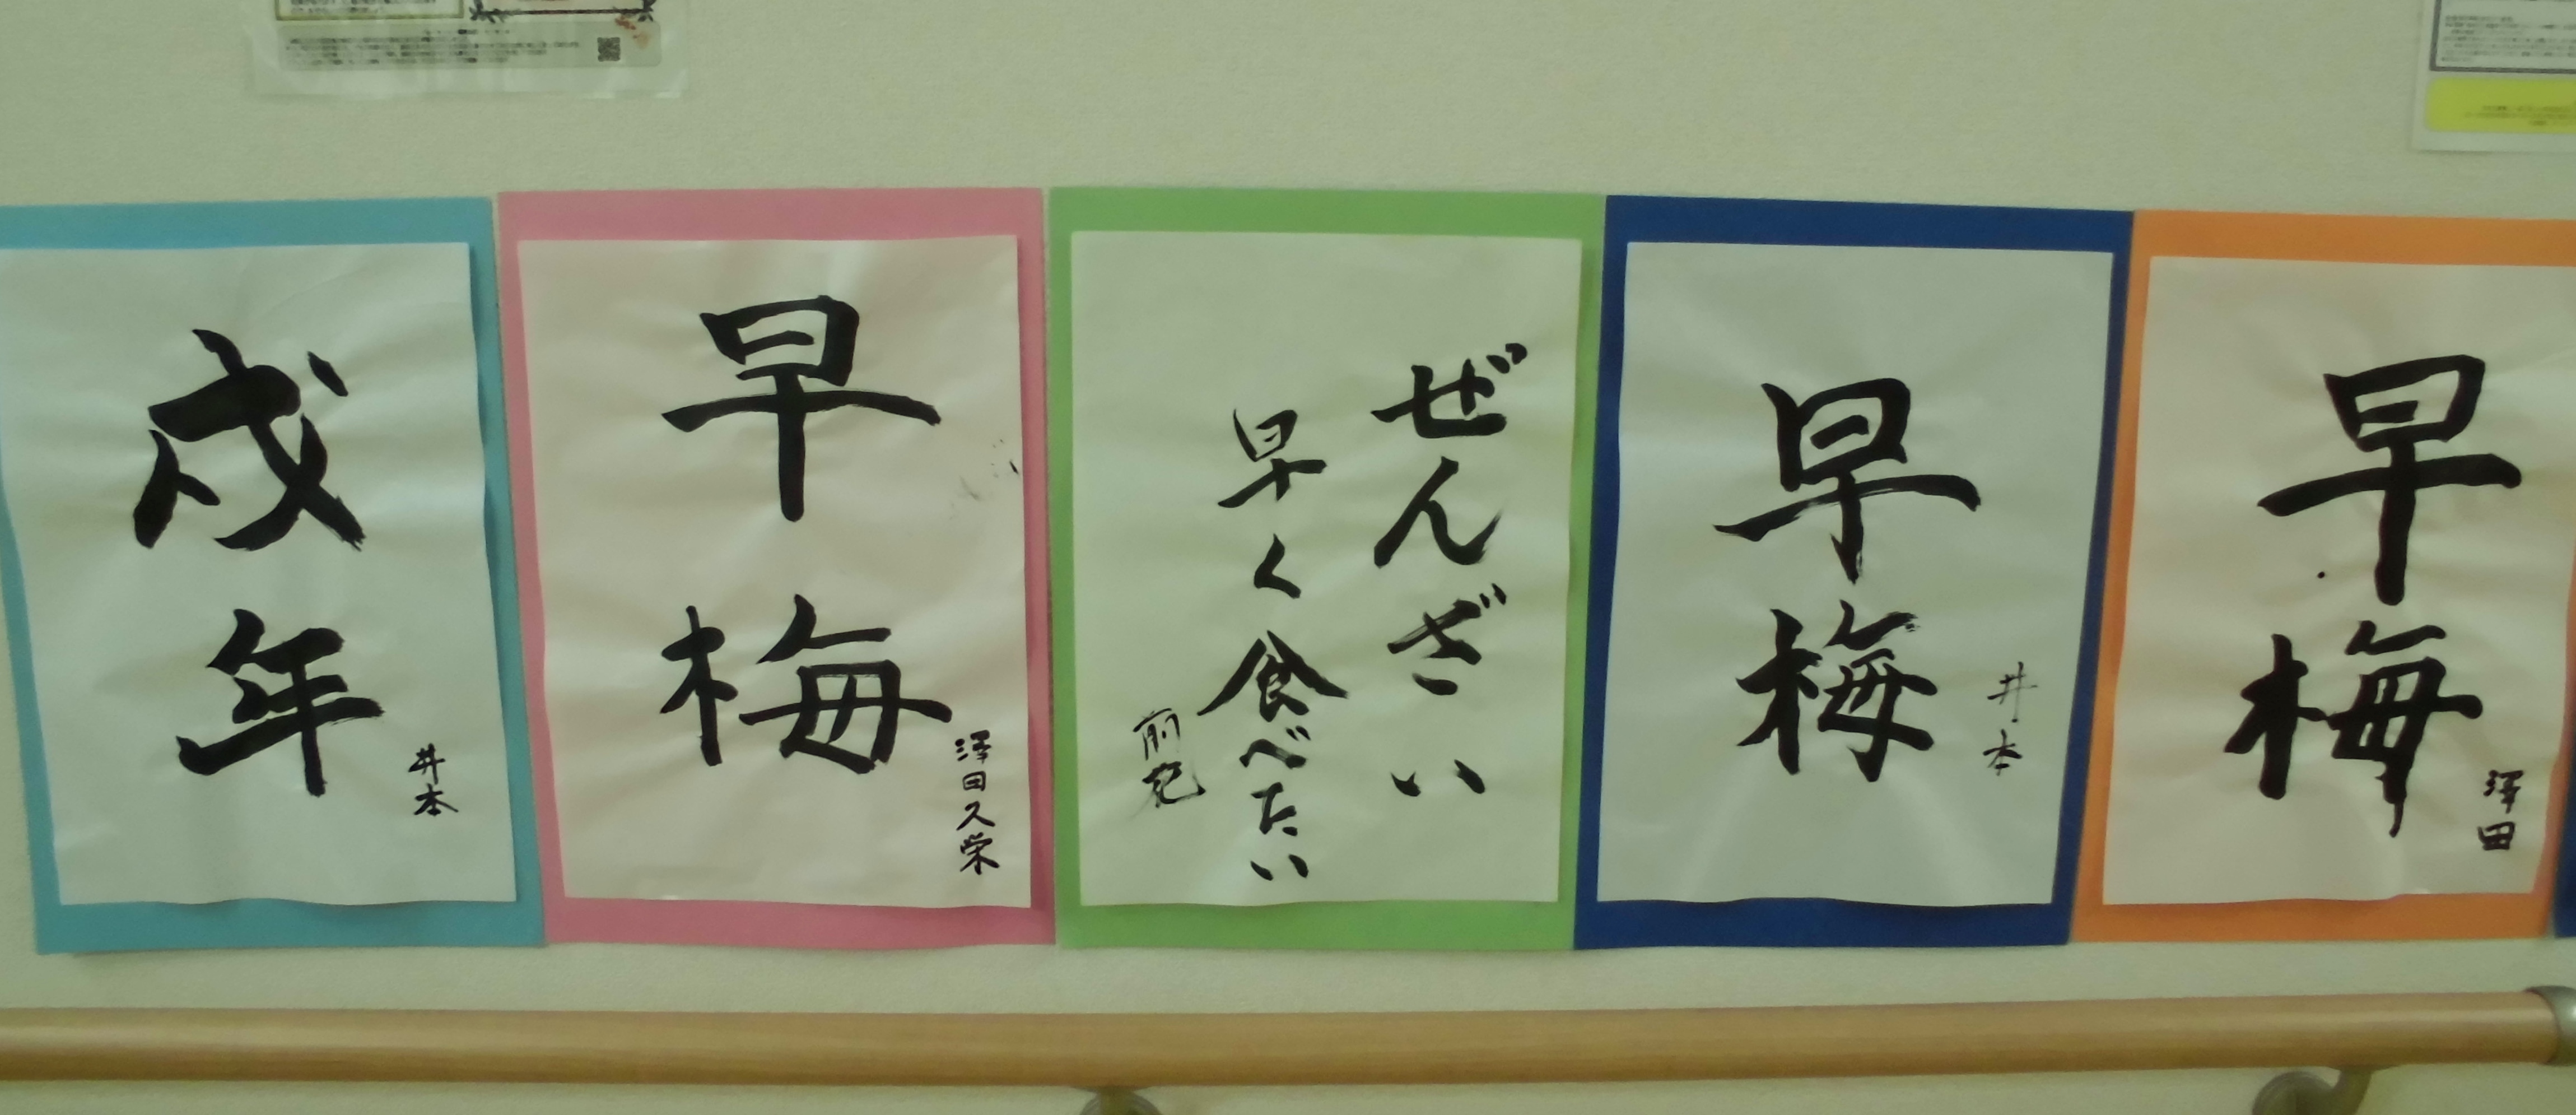 戌年
井本
早梅
澤田久栄
ぜんざい
早く食べたい
早梅
井本
早梅
澤田